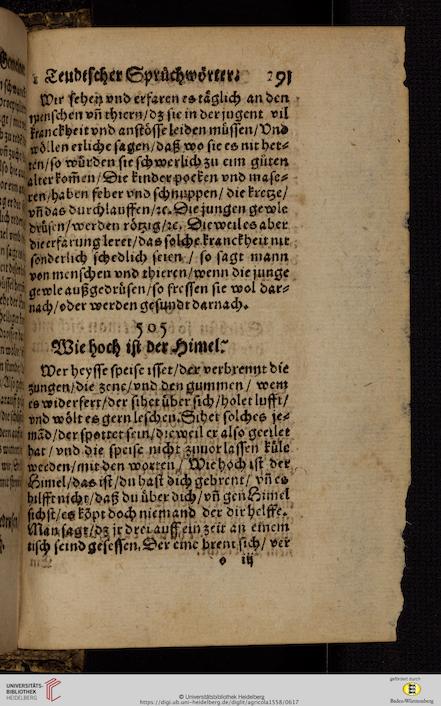 Teudtscher Sprüchwörter. 291
Wir sehen vnd erfaren es täglich an den
menschen vñ thiern/dz sie in der jugent vil
kranckheit vnd anstösse leiden müssen/Vnd
wöllen etliche sagen/daß wo sie es nit het-
ten/so würden sie schwerlich zu eim gůten
alter kom̄en/Die kinder pocken vnd mase-
ren/haben feber vnd schnuppen/die kretze/
vñ das durchlauffen/ꝛc. Die jungen gewle
drüsen/werden rötzig/ꝛc. Die weil es aber
die erfarung leret/das solche kranckheit nit
sonderlich schedlich seien / so sagt mann
von menschen vnd thieren/wenn die junge
gewle außgedrüsen/so fressen sie wol dar-
nach/oder werden gesundt darnach.
505
Wie hoch ist der Himel?
Wer heysse speise isset/der verbrennt die
zungen/die zene/vnd den gummen/ wem
es widerfert/der sihet über sich/holet lufft/
vnd wölt es gern leschen. Sihet solches je-
mãd/der spottet sein/dieweil er also geeilet
hat/vnd die speise nicht zuuor lassen küle
werden/mit den worten/ Wie hoch ist der
Himel/das ist/du hast dich gebrent/vñ es
hilfft nicht/daß du über dich/vñ gen Himel
sichst/es köpt doch niemand der dir helffe.
Man sagt/dz jr drei auff ein zeit an einem
tisch seind gesessen. Der eine brent sich/ ver
o iij
UNIVERSITÄTS-
BIBLIOTHEK
HEIDELBERG
© Universitätsbibliothek Heidelberg
https://digi.ub.uni-heidelberg.de/diglit/agricola1558/0617
gefördert durch
Baden-Württemberg